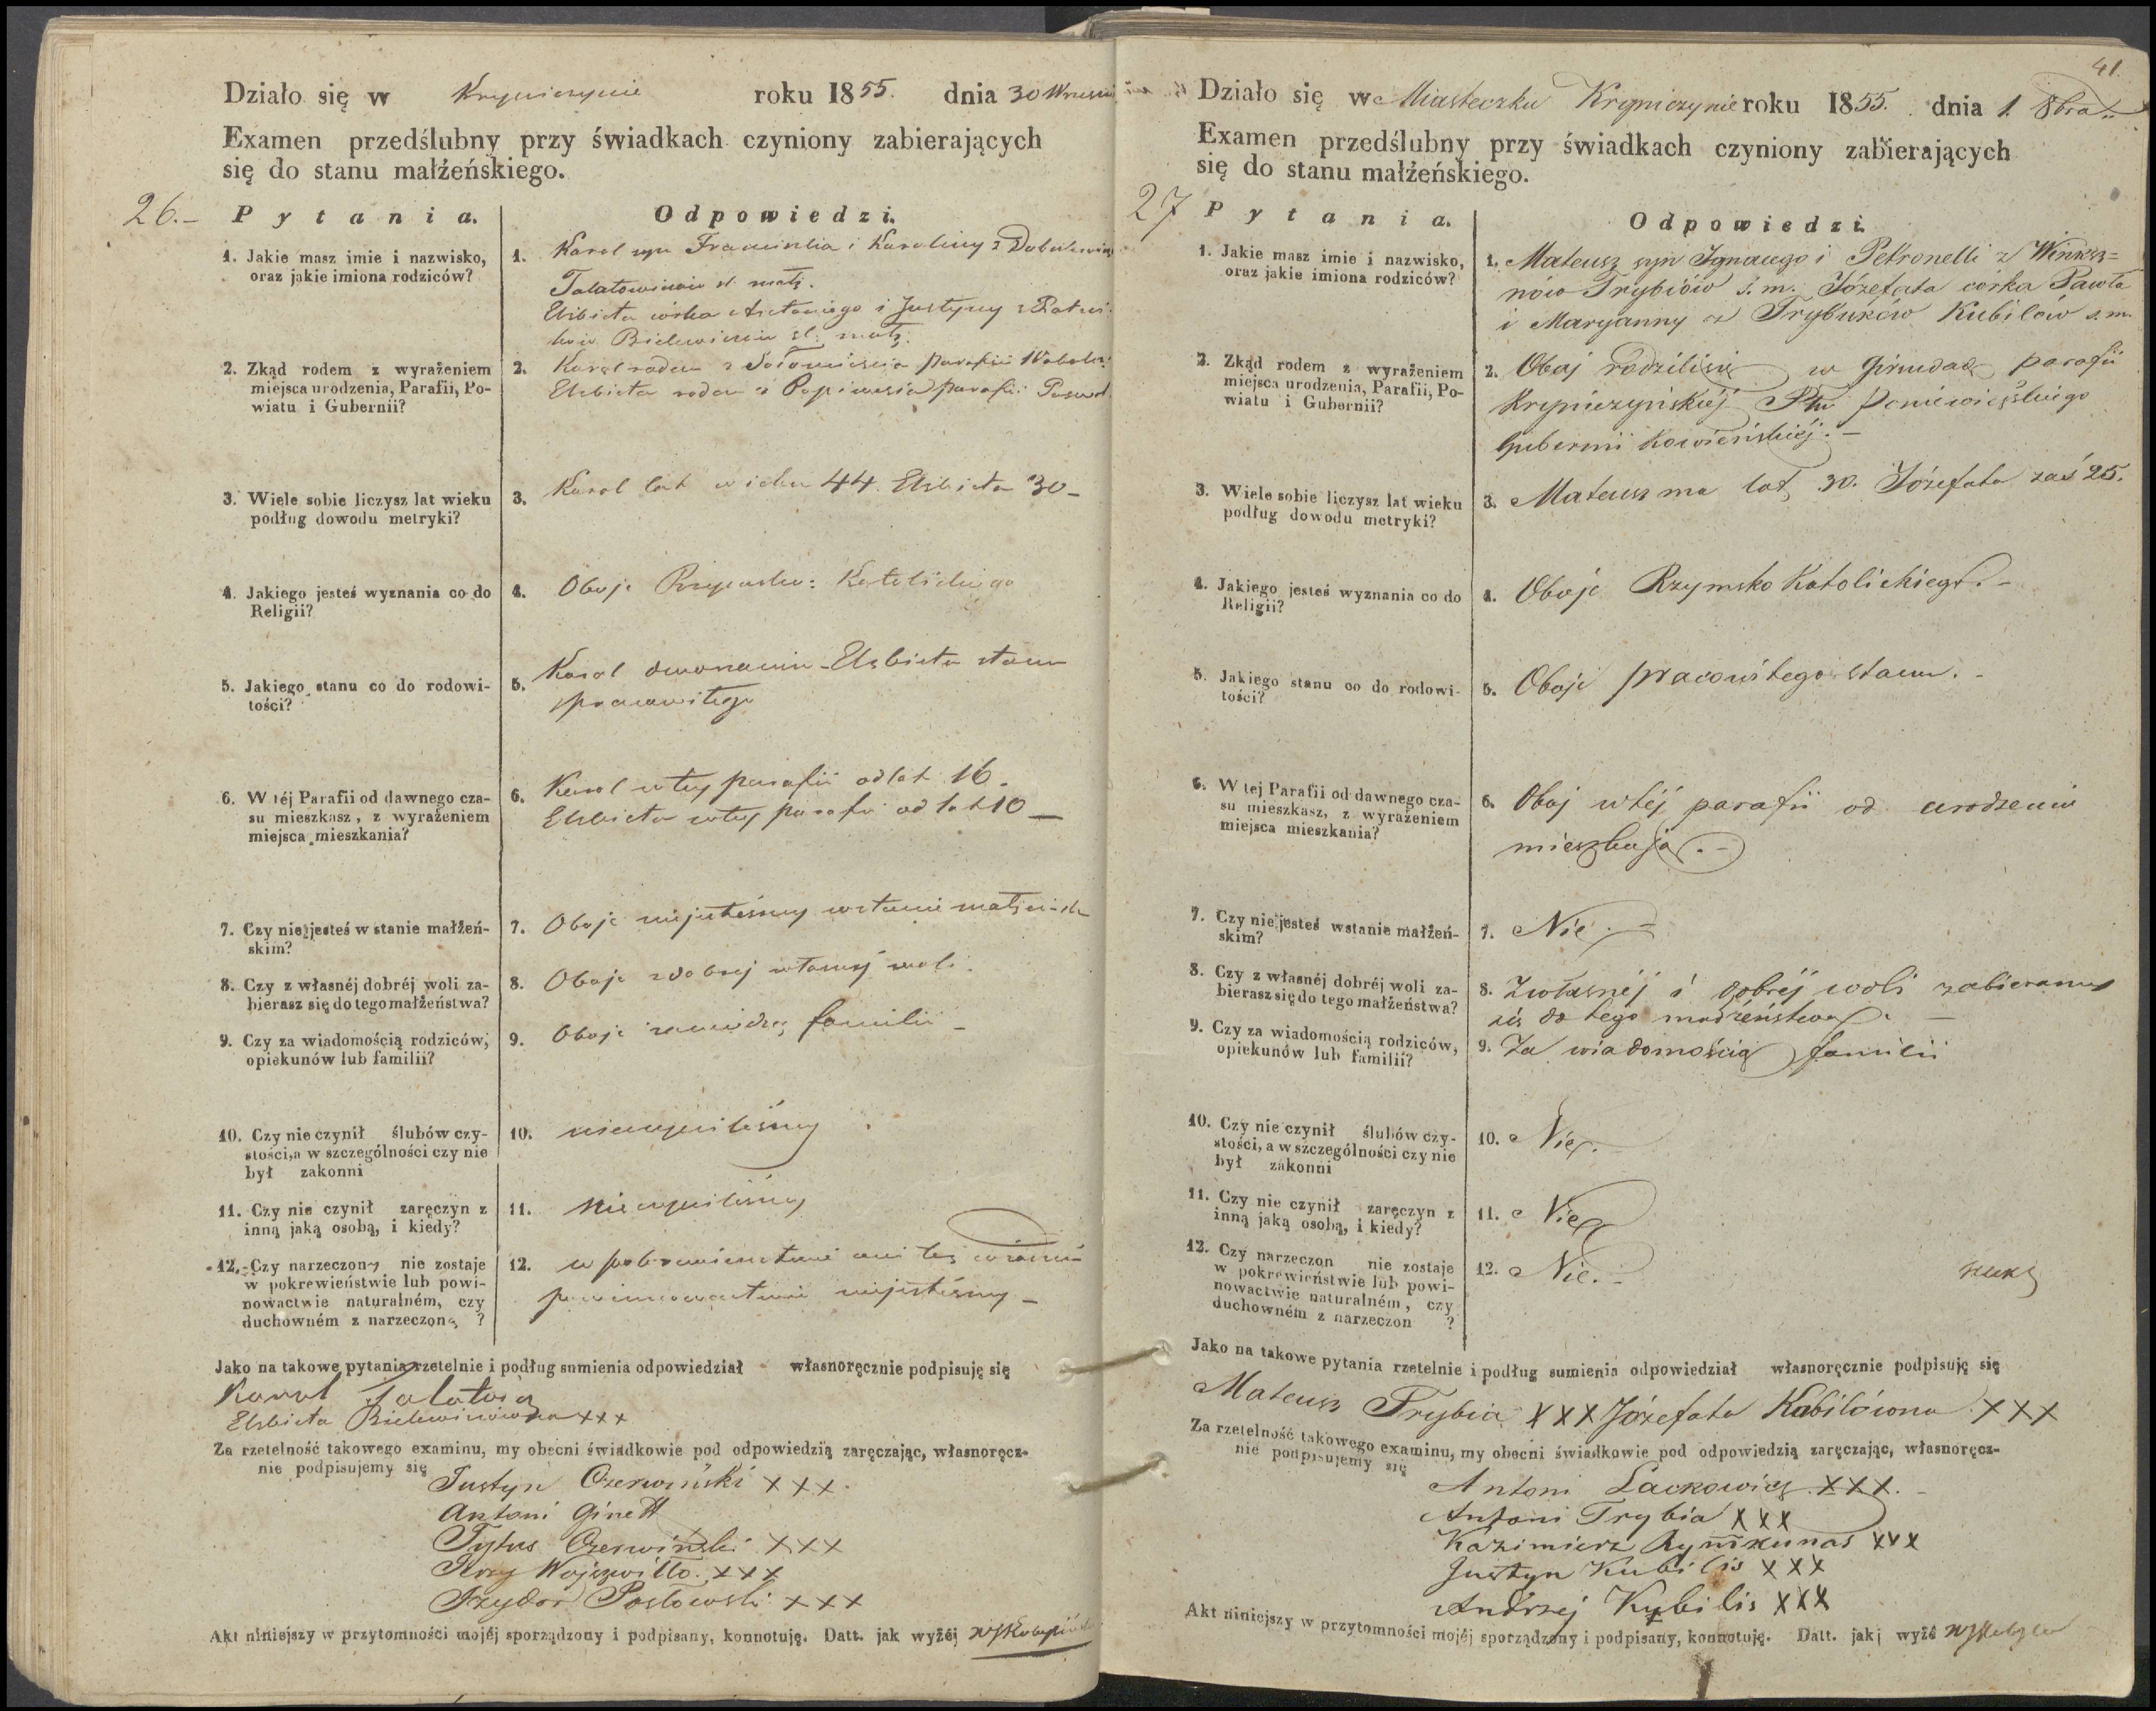 Działo się w Krypniczynie roku 1855. dnia 30
Examen przedślubny przy świadkach czyniony zabierających
się do stanu małżeńskiego.
26.-
Pytania.
Odpowiedzi.
1. Jakie masz imie i nazwisko,
oraz jakie imiona rodziców?
1. Karol syn Franciszka i Karoliny z
śl. małż.
Elżbieta córka Antoniego i Justyny z
śl. małż.
2. Zkąd rodem z wyrażeniem
miejsca urodzenia, Parafii, Po-
wiatu i Gubernii?
2. Karol rodem z parafii
Elżbieta rodem z parafii
3. Wiele sobie liczysz lat wieku
podług dowodu metryki?
3. Karol lat wieku 44. Elżbieta 30-
4. Jakiego jesteś wyznania co do
Religii?
4. Oboje Rzymsko: Katolickiego
5. Jakiego stanu co do rodowi-
tości?
5. Karol Elżbieta stanu
pracowitego
6. W téj Parafii od dawnego cza-
su mieszkasz, z wyrażeniem
miejsca mieszkania?
6. Karol w tey parafii od lat 16.
Elżbieta w tey parafii od lat 10 —
7. Czy nie jesteś w stanie małżeń-
skim?
7. Oboje niejesteśmy w stanie
8. Czy z własnéj dobréj woli za-
bierasz się do tego małżeństwa?
8. Oboje z dobrej własnej woli.
9. Czy za wiadomością rodziców,
opiekunów lub familii?
9. Oboje za familii -
10. Czy nie czynił ślubów czy-
stości, a w szczególności czy nie
był zakonni
10. nieczyniliśmy
11. Czy nie czynił zaręczyn z
inną jaką osobą, i kiedy?
11. nieczyniliśmy
12. Czy narzeczony nie zostaje
w pokrewieństwie lub powi-
nowactwie naturalném, czy
duchowném z narzeczoną ?
12. w pokrewieństwie ani też w
powinowactwie niejesteśmy -
Jako na takowe pytania rzetelnie i podług sumienia odpowiedział własnoręcznie podpisuję się
Karol
Elżbieta xxx
Za rzetelność takowego examinu, my obecni świadkowie pod odpowiedzią zaręczając, własnoręcz-
nie podpisujemy się
Justyn Czerwiński xxx.
Antoni Ginett
Tytus Czerwiński xxx
Jerzy Wojszwiłło. xxx
Izydor Posłowski xxx
Akt niniejszy w przytomności mojéj sporządzony i podpisany, konnotuję. Datt. jak wyżéj
41.
Działo się w Miasteczku Krypniczynie roku 1855. dnia 1. 8bra
Examen przedślubny przy świadkach czyniony zabierających
się do stanu małżeńskiego.
27
Pytania.
Odpowiedzi.
1. Jakie masz imie i nazwisko,
oraz jakie imiona rodziców?
1. Mateusz syn Ignacego i Petronelli z Winksz=
now Trybiów ś. m. Józefata corka Pawła
i Maryanny z Trybuków Kubilów ś. m.
2. Zkąd rodem z wyrażeniem
miejsca urodzenia, Parafii, Po-
wiatu i Gubernii?
2. Obaj rodzilisię w parafii
Krypniczyńskiéj Ptu Poniewiezskiego
Gubernii Kowieńskiéj. -
3. Wiele sobie liczysz lat wieku
podług dowodu metryki?
3. Mateusz ma lat 30. Józefata zaś 25.
4. Jakiego jesteś wyznania co do
Religii?
4. Oboje Rzymsko Katolickiego. -
5. Jakiego stanu co do rodowi-
tości?
5. Oboje pracowitego stanu. -
6. W tej Parafii od dawnego cza-
su mieszkasz, z wyrażeniem
miejsca mieszkania?
6. Obaj w téj parafii od urodzenia
mieszkają. -
7. Czy nie jesteś wstanie małżeń-
skim?
7. Nie. -
8. Czy z własnéj dobréj woli za-
bierasz się do tego małżeństwa?
8. Zwłasnéj i dobréj woli zabieramy
się do tego małżeństwa. -
9. Czy za wiadomością rodziców,
opiekunów lub familii?
9. Za wiadomością familii
10. Czy nie czynił ślubów czy-
stości, a w szczególności czy nie
był zakonni
10. Nie. -
11. Czy nie czynił zaręczyn z
inną jaką osobą, i kiedy?
11. Nie
12. Czy narzeczon nie zostaje
w pokrewieństwie lub powi-
nowactwie naturalném, czy
duchowném z narzeczon ?
12. Nie. -
Jako na takowe pytania rzetelnie i podług sumienia odpowiedział własnoręcznie podpisuję się
Mateusz Trybia XXX Józefata Kubilówna XXX
Za rzetelność takowego examinu, my obecni świadkowie pod odpowiedzią zaręczając, własnoręcz-
nie podpisujemy się
Antoni Lackowicz XXX. -
Antoni Trybia XXX
Kazimierz Rymkunas XXX
Justyn Kubilis XXX
Andrzej Kubilis XXX
Akt niniejszy w przytomności mojéj sporządzony i podpisany, konnotuję. Datt. jak wyżé